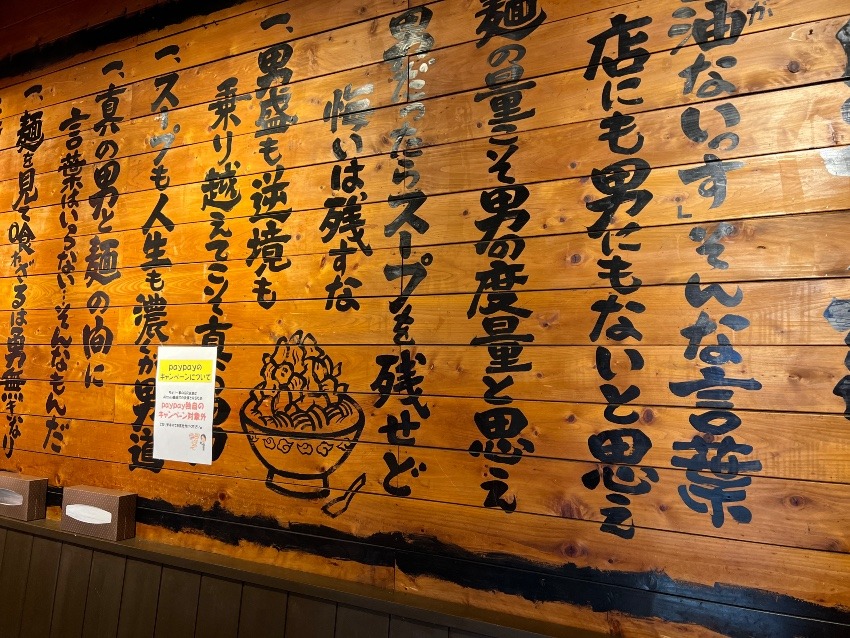 油がないっす」そんな言葉
店にも男にもないと思え
麺の量こそ男の度量と思え
男だったらスープを残せど
悔いは残すな
一、男盛も逆境も
乗り越えてこそ真の男
一、スープも人生も濃が男道
一、真の男と麺の間に
言葉はいらない…そんなもんだ
一、麺を見て喰わざるは男無きなり
paypayの
キャンペーンについて
paypay独自の
キャンペーン対象外